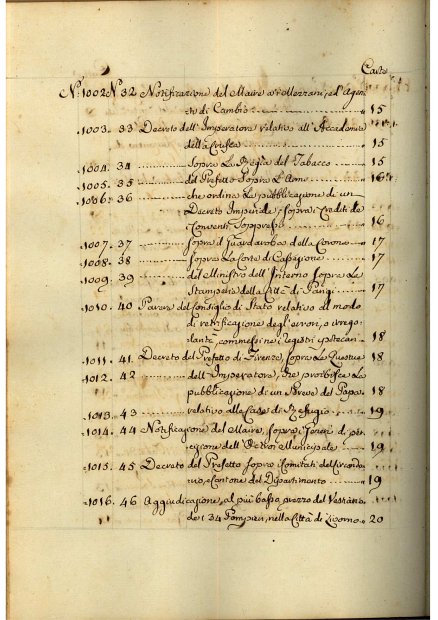 Carte
N.° 1002 N.° 32 Notificazione del Maire a' Mezzani, ed Agen-
ti di Cambio 15
1003. 33 Decreto dell'Imperatore relativo all'Accademia
della Crusca 15
1004. 34 Sopra la Regia del Tabacco 15
1005. 35 del Prefetto Sopra l'Armi 16
1006. 36 che ordina la pubblicazione di un
Decreto Imperiale sopra i Crediti de
Conventi Soppressi 16
1007. 37 sopra il Guardaroba della Corona 17
1008. 38 sopra la Corte di Cassazione 17
1009. 39 del Ministro dell'Interno sopra le
Stamperie della Città di Parigi 17
1010. 40 Parere del Consiglio di Stato relativo al modo
di rettificazione degl'errori, o irrego-
larità commesse ne' Registri 18
1011. 41. Decreto del Prefetto di Firenze, sopra la Questua 18
1012. 42 dell'Imperatore, che proibisce la
pubblicazione di un Breve del Papa 18
1013. 43 relativo alla Case di Refugio 19
1014. 44 Notificazione del Maire, sopra i
cezione dell'Octroi Municipale 19
1015. 45 Decreto del Prefetto sopra i Comitati del Circonda-
rio, e Cantone del Dipartimento 19
1016. 46 Aggiudicazione, al più basso prezzo del Vestiario
de' 34 Pompieri, nella Città di Livorno 20